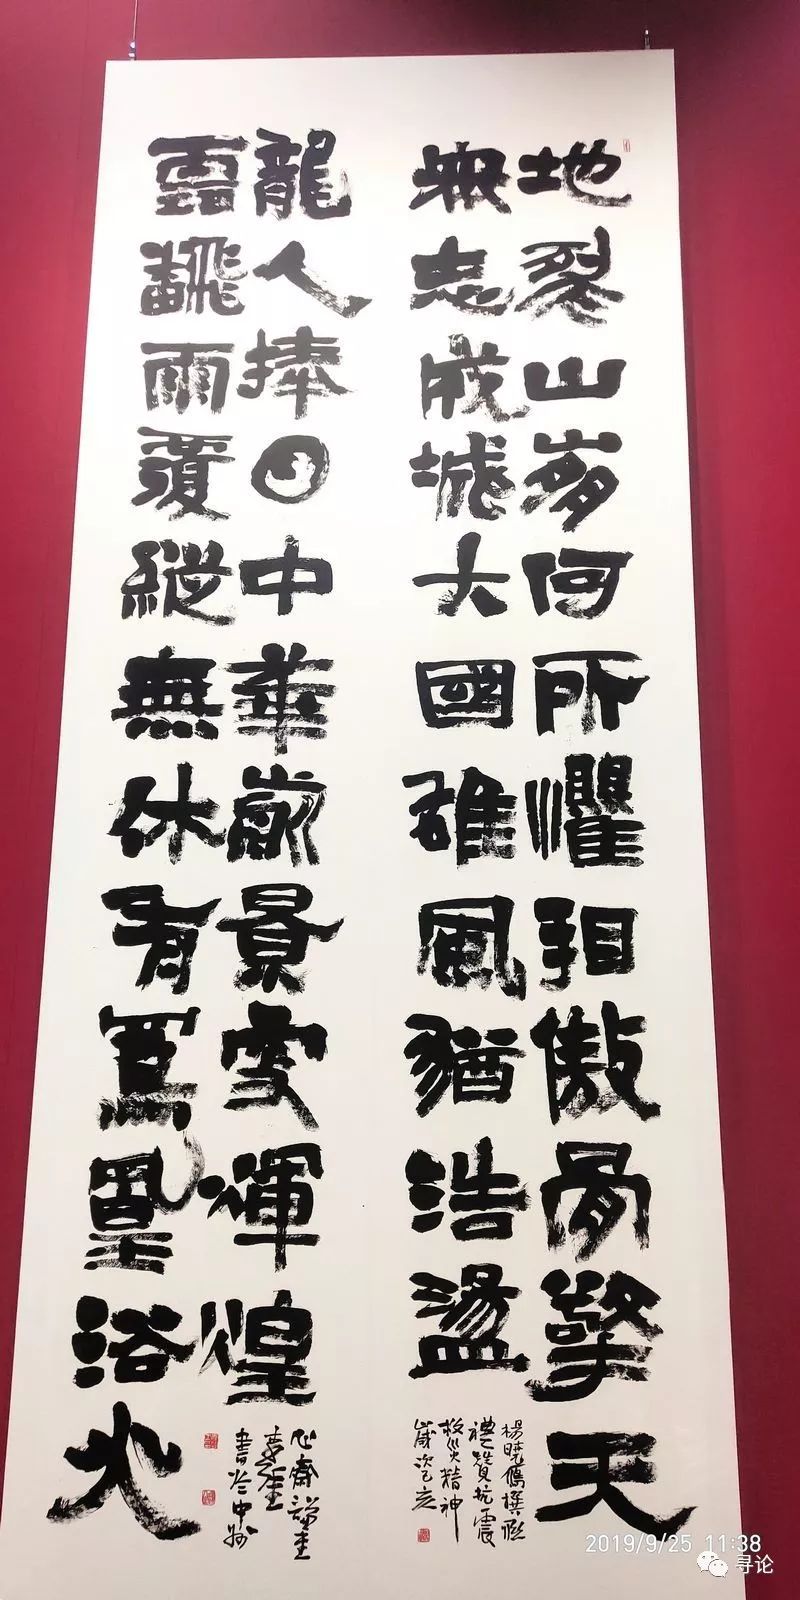 地裂山崩何所懼看傲骨擎天
衆志成城大國雄風猶浩盪
楊曉撰聯
禮贊抗震
救災精神
歲次己亥
雲翻雨覆縱無休有鳳凰浴火
龍人捧日中華前景更輝煌
心齋
書於中州
2019/9/25 11:38
寻论